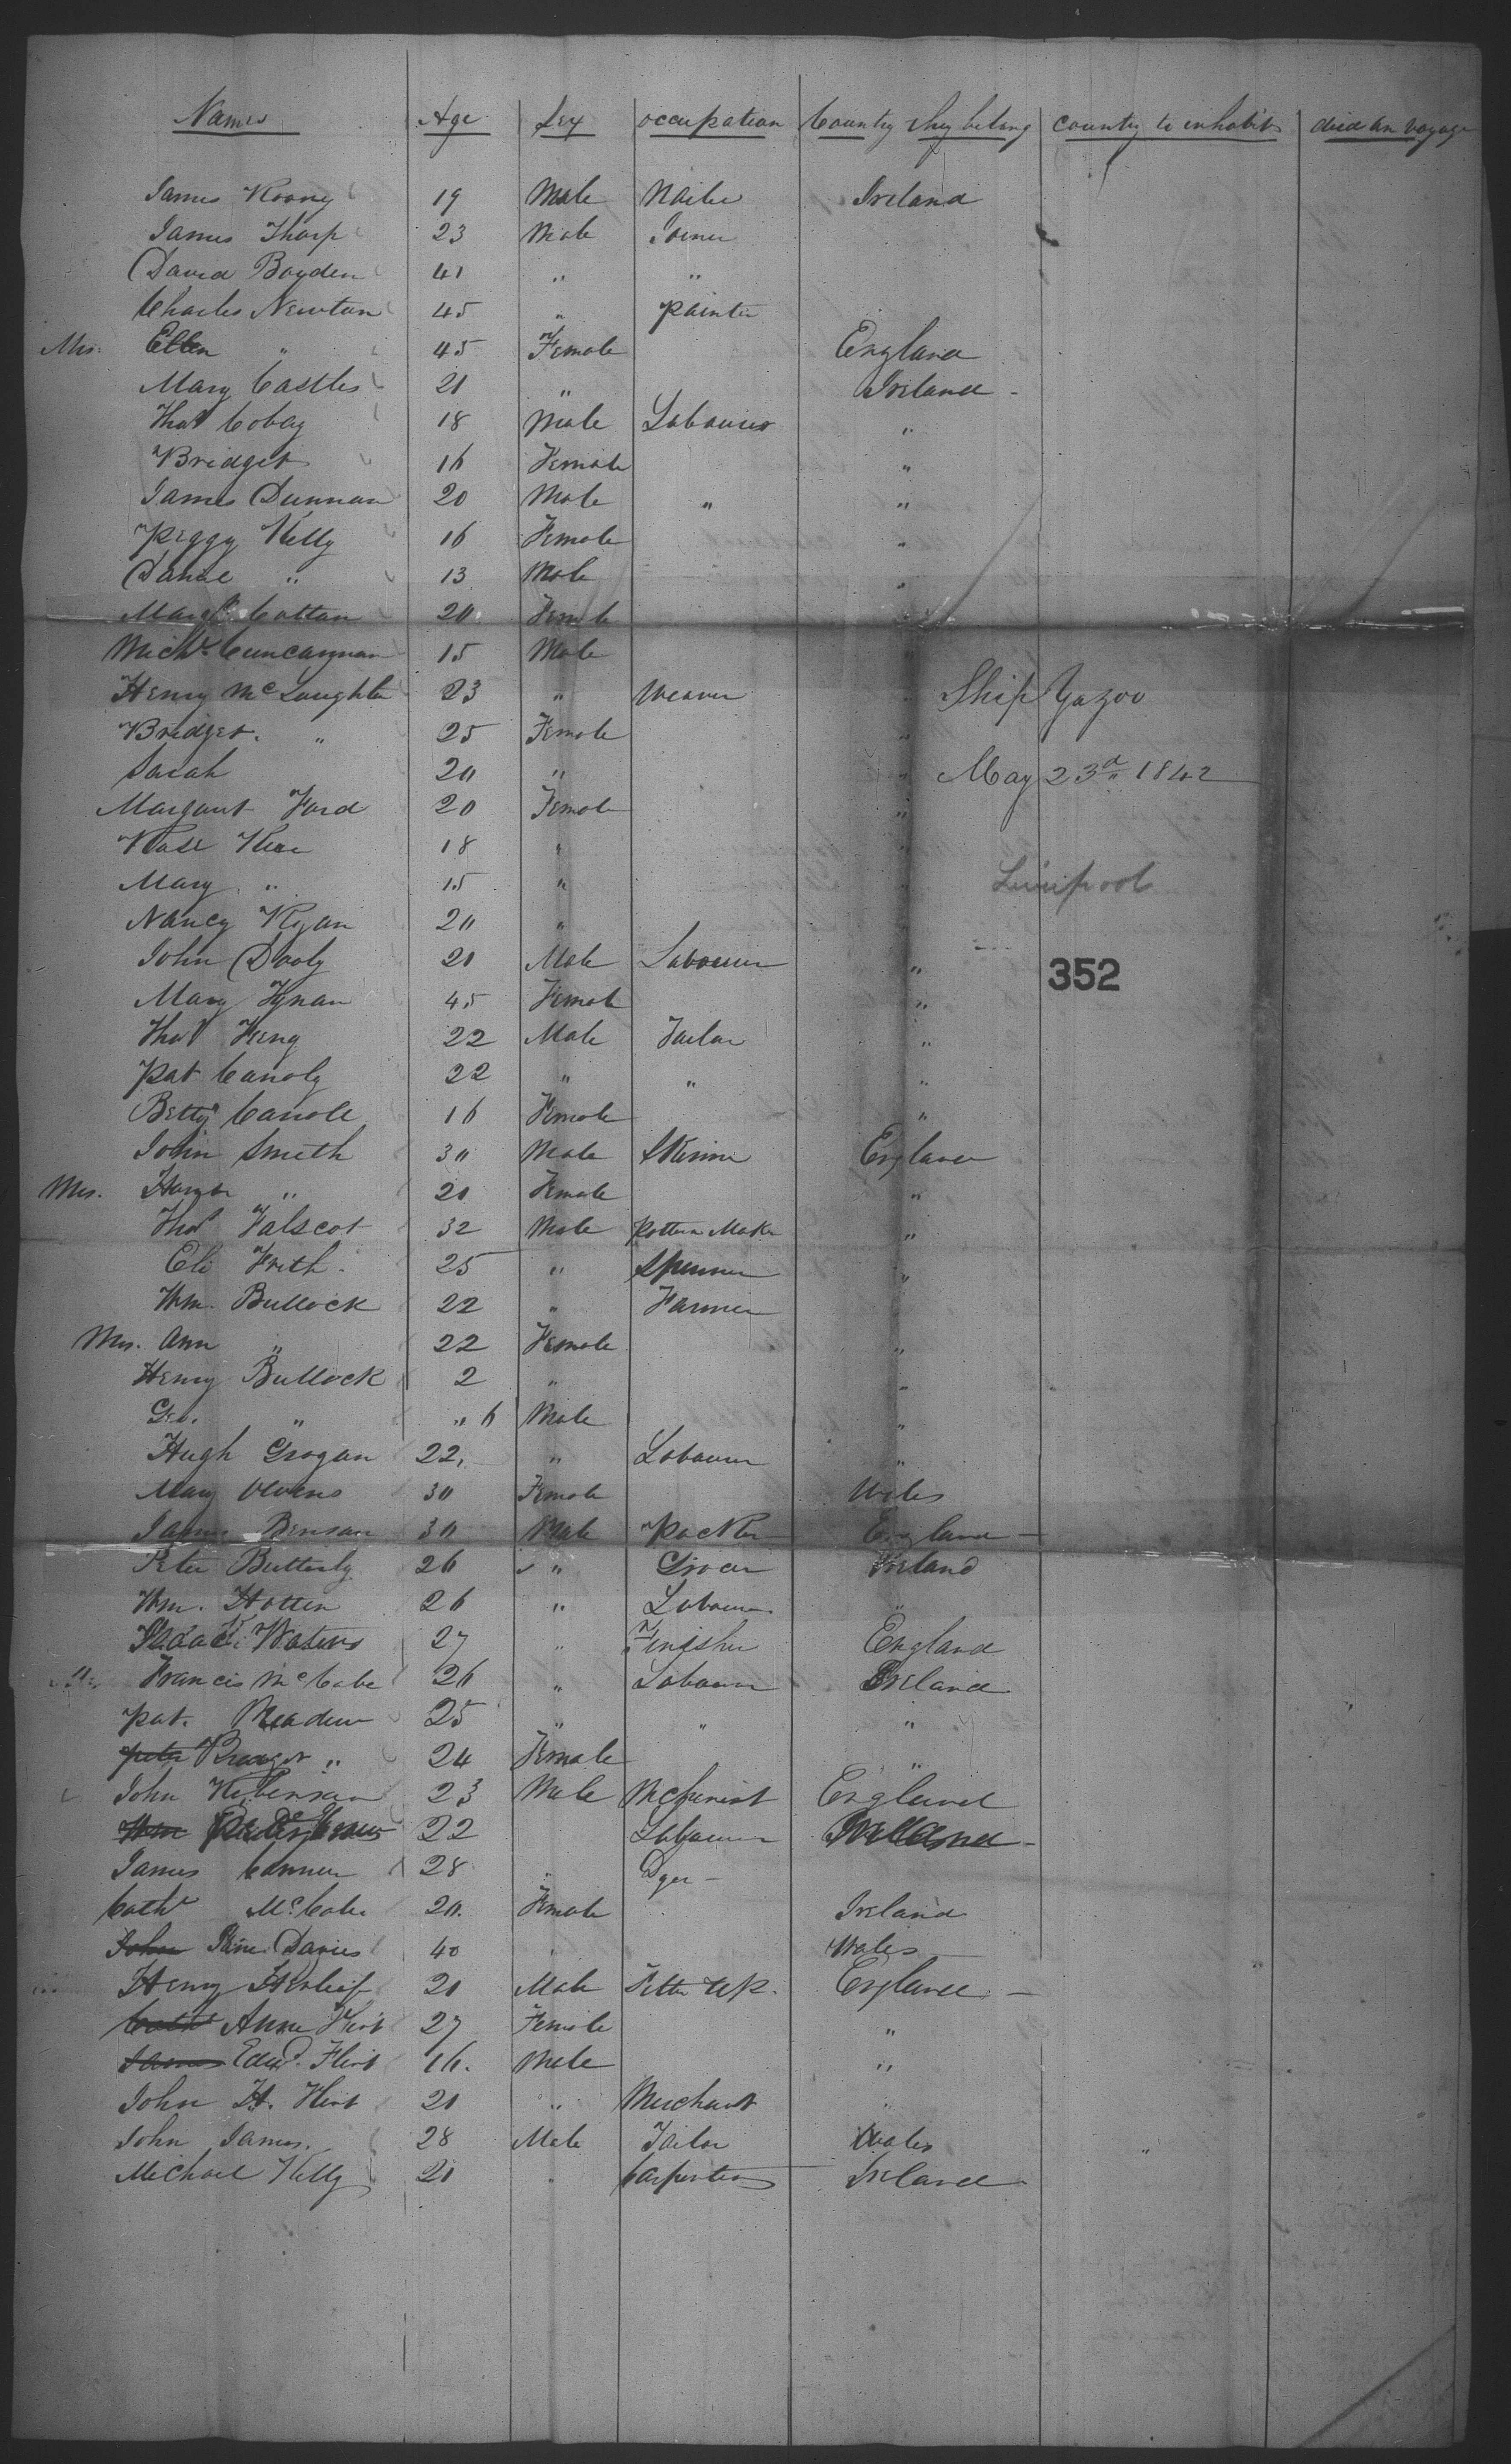 Names Age Sex occupation Country they belong country to inhabit died on voyage
James Roony 19 Male Nailer Ireland
James Tharp 23 Male Joiner
David Boyden 41 " "
Charles Newton 45 " painter
Mrs. Ellen " 45 Female England
Mary Castles 21 " Ireland -
Thos Cobay 18 Male Labourer "
Bridget 16 Female "
James Dunnan 20 Male " "
Peggy Kelly 16 Female "
" 13 Male "
Margt Cottan 20 Female
Michl 15 Male "
Henry McLaughlin 23 " Weaver " Ship Yazoo
Bridget. " 25 Female "
Sarah 20 " " May 23d 1842
Margaret Ford 20 Female "
Rose 18 " "
Mary " 15 " Liverpool
Nancy 20 "
John Dooly 20 Male Labourer " 352
Mary 45 Female "
Thos 22 Male Tailor "
Pat Canoly 22 " " "
Betty 16 Female "
John Smith 30 Male England
Mrs. " 20 Female "
Thos 32 Male Pattern Maker "
Eli Frith 25 " Spinner "
Wm. Bullock 22 " Farmer
Mrs. Ann " 22 Female "
Henry Bullock 2 " "
Geo. " " 6 Male "
Hugh Grogan 22 " Labourer "
Mary Owens 30 Female Wales
James Benson 30 Male Packer England -
Peter Butterly 26 " Grocer Ireland
Wm. Hotten 26 " Labourer "
Isaac Waters 27 " Finisher England
Francis McCabe 26 " Labourer Ireland
Pat. 25 " " "
Peter Bridget " 24 Female "
John 23 Male Machinist England
Wm 22 Labourer Ireland -
James 28 " Dyer -
Cathe McCabe 20. Female Ireland
John Jane Davies 40 " Wales
Henry 20 Male England -
Cathe Anne Flint 27 Female "
James Edwd. Flint 16. Male "
John H. Flint 21 " Merchant "
John James. 28 Male Tailor Wales
Michael Kelly 21 " Carpenter Ireland -